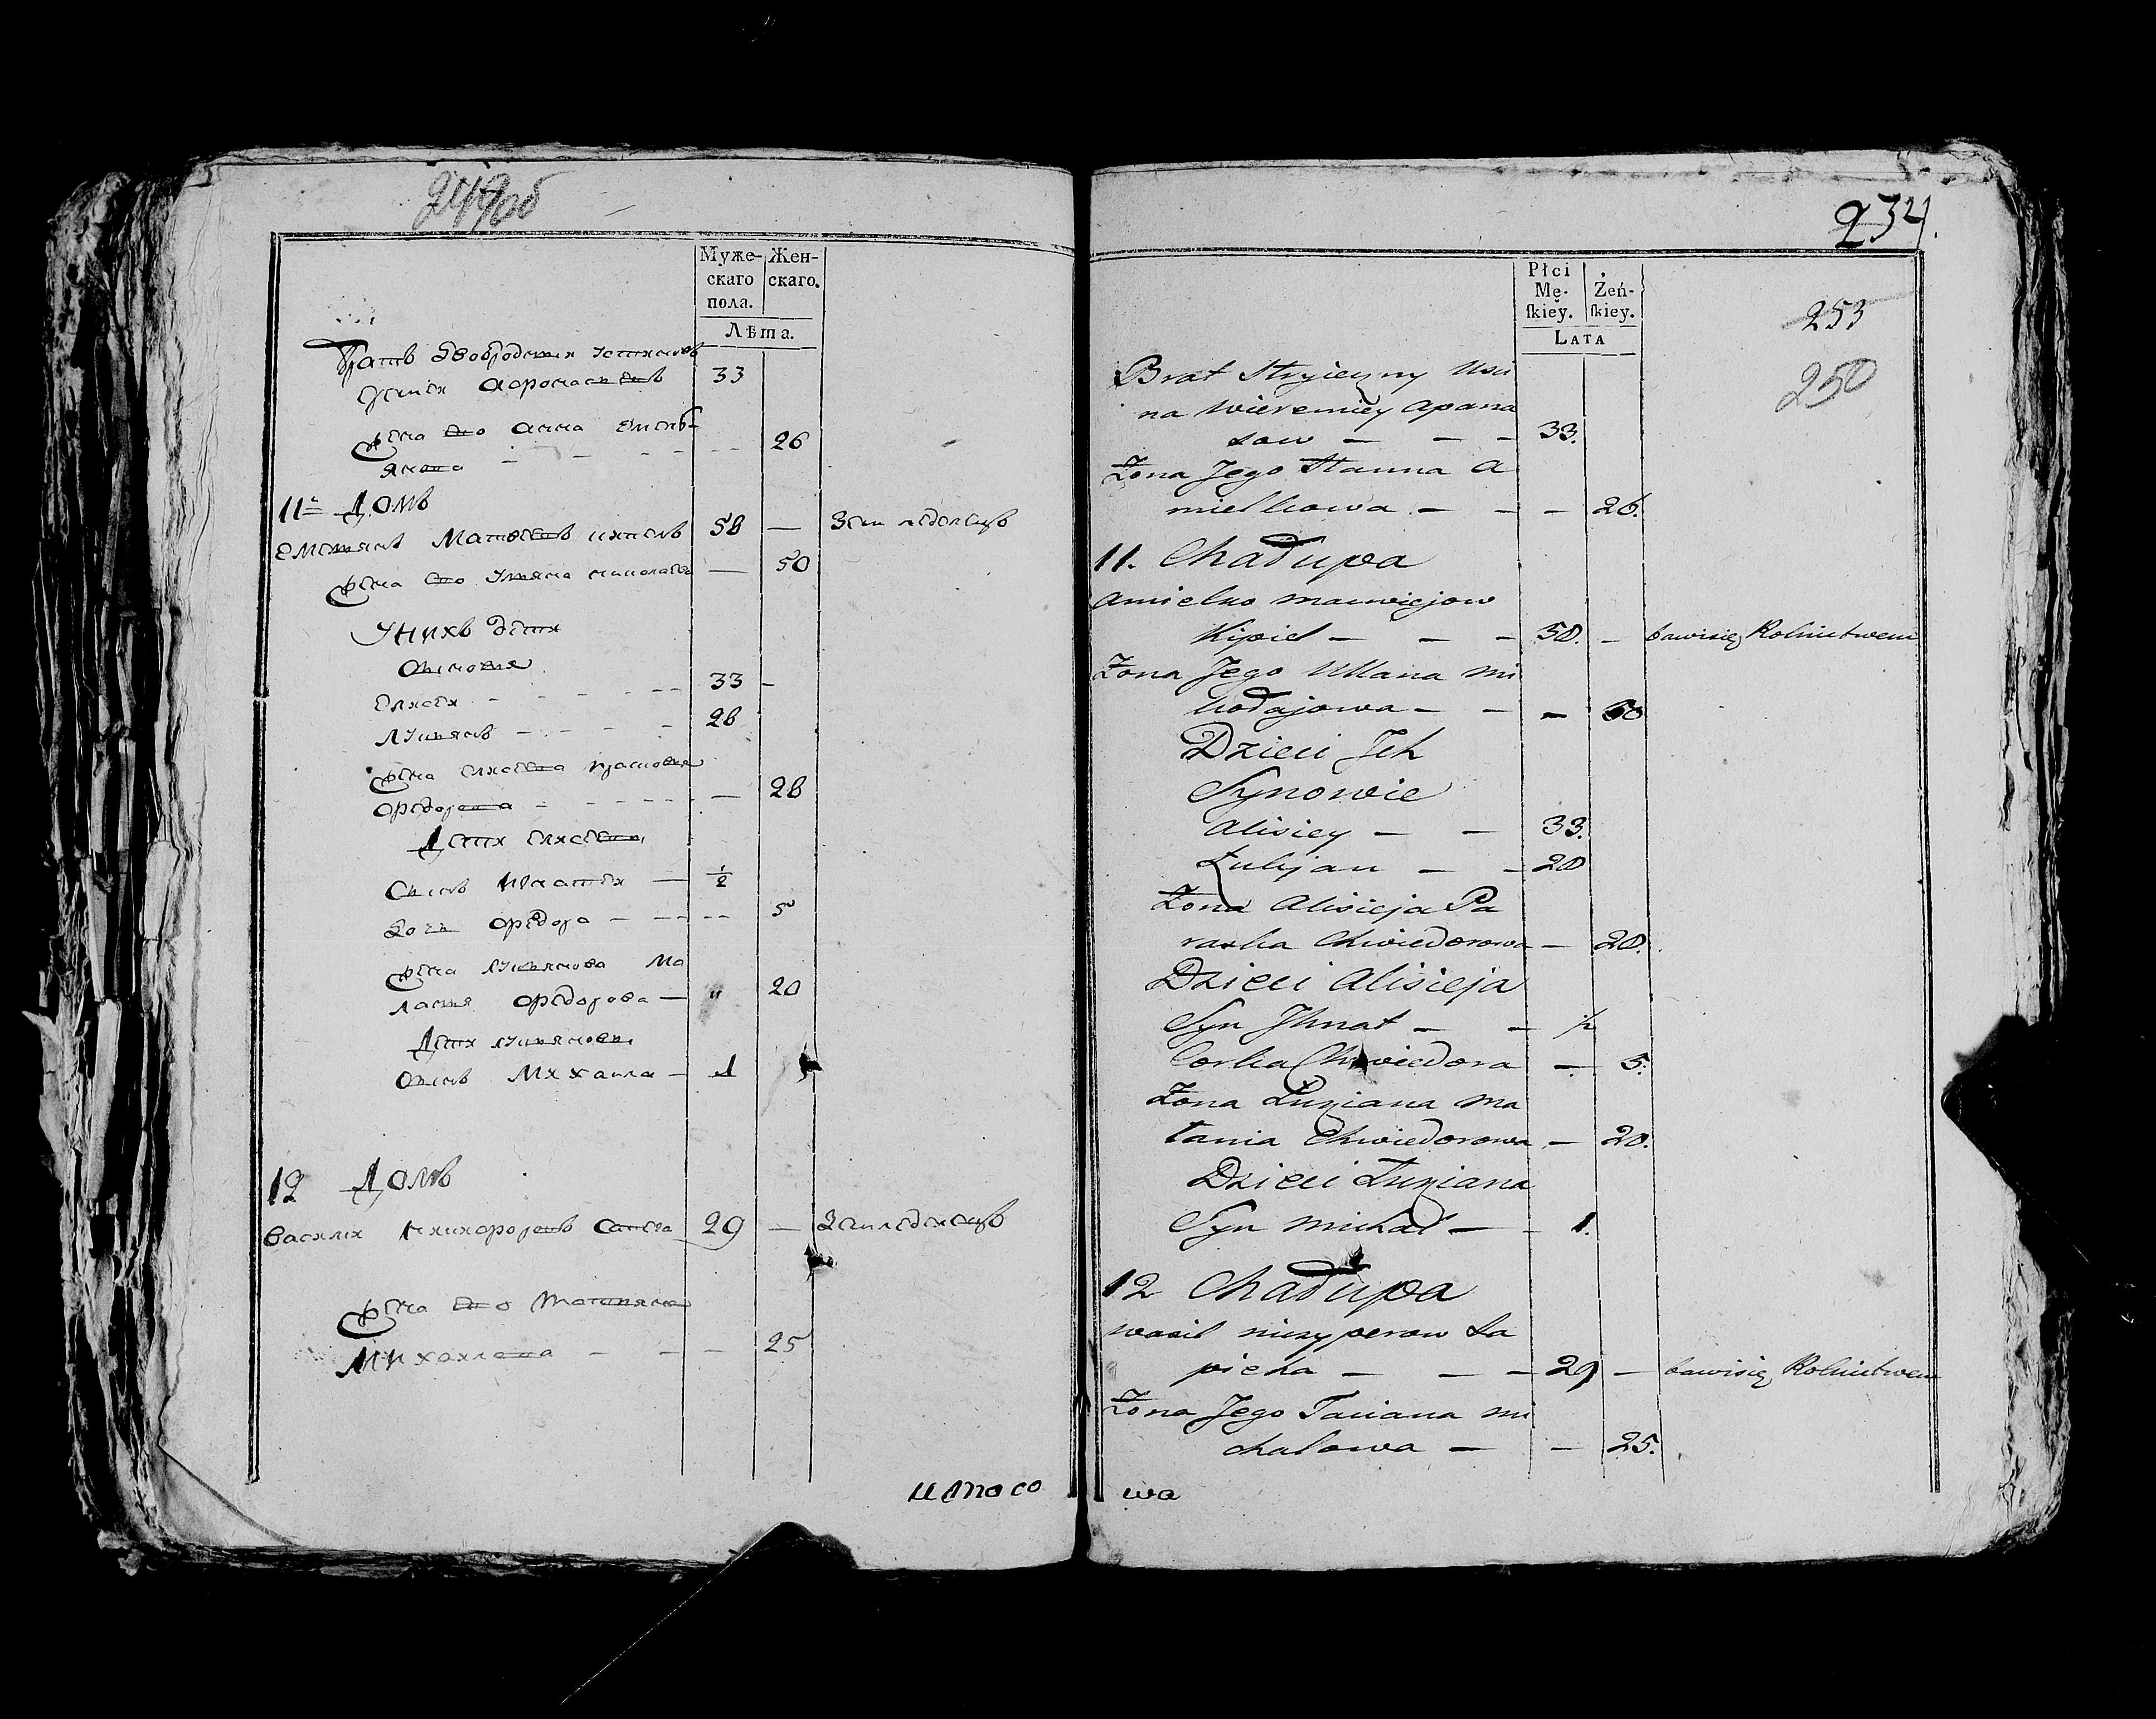 249об
Муже- Жен-
скаго скаго.
пола.
Лѣта.
Братъ двоюродній
33
жена его Анна Емель-
26
янова
11 Домъ
Емельянъ Матвеевъ 58 — Земледелецъ
жена его Ульяна Николаева — 50
У нихъ дети
Сыновья
Елисей 33 —
Лукьянъ 28
жена Елисеева Прасковья
Федорова — 28
Дети Елисеевы
Сынъ Игнатей — ½
Дочь Федора 5
жена Лукьянова Ма
ланья Федорова — " 20
Дети Лукьяновы
Сынъ Михайла — 1
12 Домъ
Василей Никифоровъ Сапега 29 — Земледелецъ
жена его Татьяна
Михайлова — — — 25
итого
234.
Płci Żeń-
Mę- ſkiey.
ſkiey.
LATA
253
250
Brat Stryieczny Usti
na Wieremiey Apana
sow — — — 33.
Żona Jego Hanna A
mielkowa — — — 26.
11. Chałupa
Amielko Maciejow
Kisiel — — — 58. — bawi się Rolnictwem
Żona Jego Ullana Mi
kołajowa — — — 50
Dzieci Ich
Synowie
Alisiey — — 33.
Łukjan — — 28
Żona Alisieja Pa
raska Chwiedorowa — 28.
Dzieci Alisieja
Syn Ihnat — — ½
Corka Chwiedora — 5.
Żona Łukjana Ma
łania Chwiedorowa — 20.
Dzieci Łukjana
Syn Michał — 1.
12 Chałupa
Wasil Niczyperow Sa
pieha — — — 29 — bawi się Rolnictwem
Żona Jego Taciana Mi
chałowa — — 25.
wa